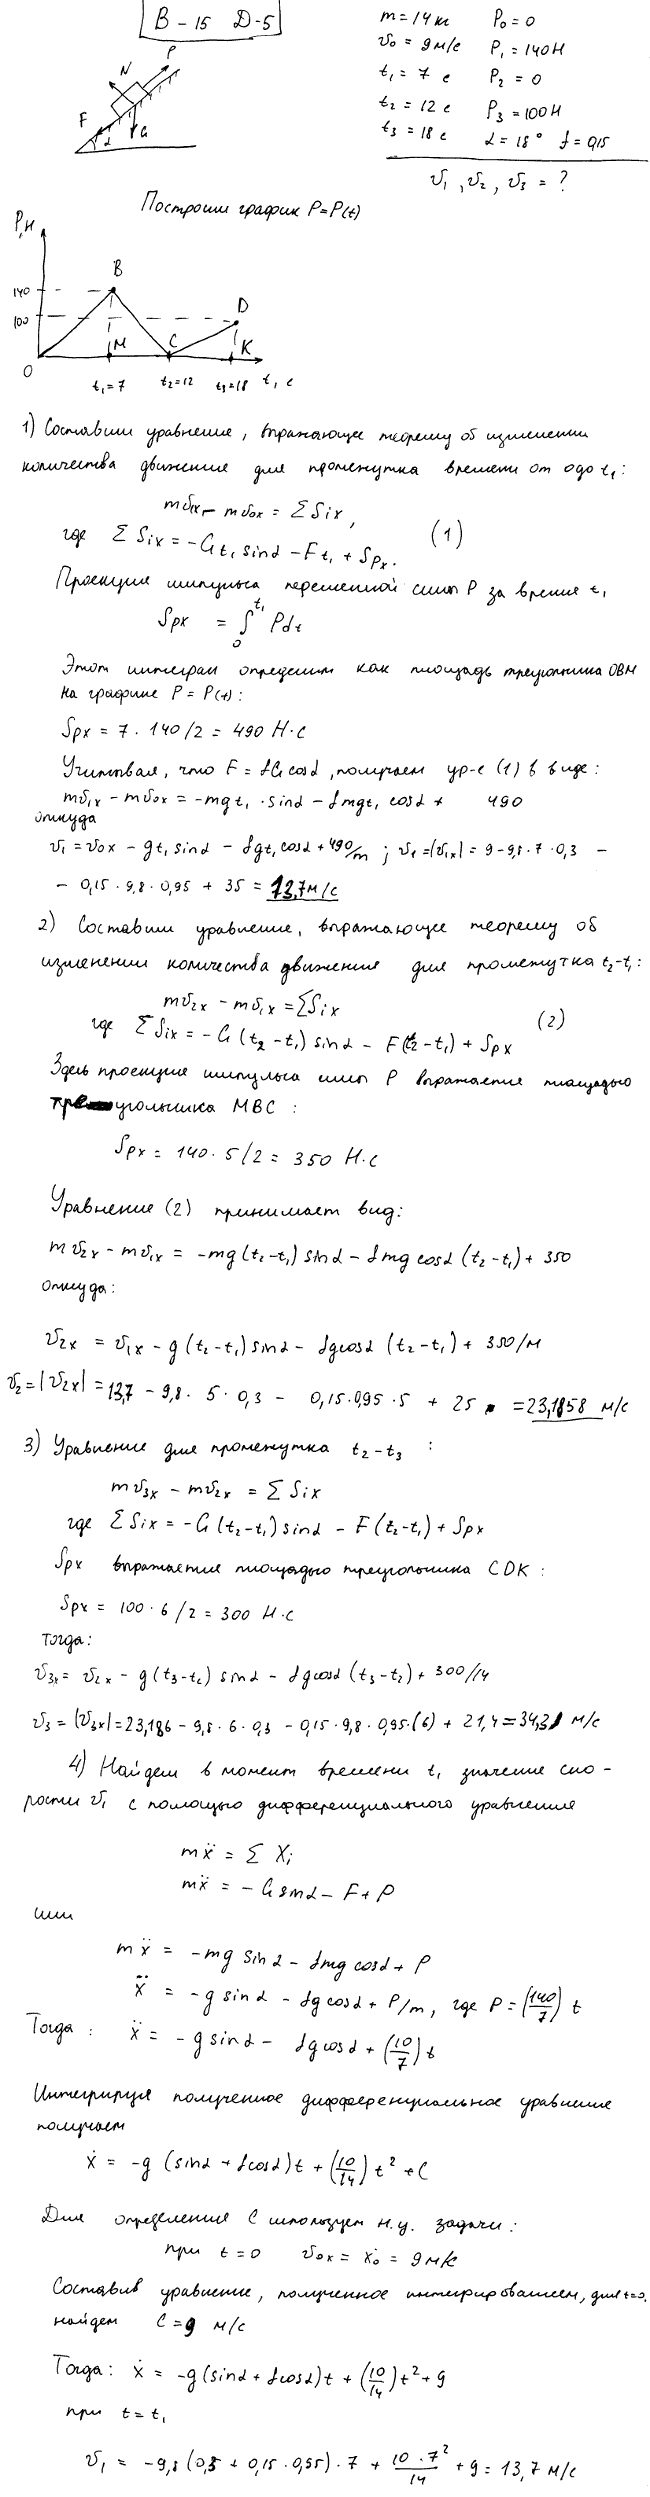 В – 15 Д-5
m = 14 кг P₀ = 0
v₀ = 9 м/с P₁ = 140 Н
t₁ = 7 с P₂ = 0
t₂ = 12 с P₃ = 100 Н
t₃ = 18 с α = 18° f = 0,15
v₁, v₂, v₃ = ?
P
N
F
α
G
Построим график P = P(t)
P, Н
B
140
D
100
M
C
K
O
t₁ = 7 t₂ = 12 t₃ = 18 t, с
1) Составим уравнение, выражающее теорему об изменении
количества движения для промежутка времени от 0 до t₁:
mv₁ₓ – mv₀ₓ = ΣSᵢₓ,
где ΣSᵢₓ = –Gt₁ sinα – Ft₁ + Sₚₓ. (1)
Проекция импульса переменной силы P за время t₁
Sₚₓ = ∫₀^t₁ Pdt
Этот интеграл определим как площадь треугольника OBM
на графике P = P(t):
Sₚₓ = 7 · 140/2 = 490 Н·с
Учитывая, что F = fG cosα, получаем ур-е (1) в виде:
mv₁ₓ – mv₀ₓ = –mgt₁ · sinα – fmgt₁ cosα + 490
откуда
v₁ = v₀ₓ – gt₁ sinα – fgt₁ cosα + 490/m ; v₁ = |v₁ₓ| = 9 – 9,8 · 7 · 0,3 –
– 0,15 · 9,8 · 0,95 + 35 = 13,7 м/с
2) Составим уравнение, выражающее теорему об
изменении количества движения для промежутка t₂–t₁:
mv₂ₓ – mv₁ₓ = ΣSᵢₓ
где ΣSᵢₓ = –G (t₂ – t₁) sinα – F(t₂ – t₁) + Sₚₓ (2)
Здесь проекция импульса силы P выражается площадью
треугольника MBC :
Sₚₓ = 140 · 5/2 = 350 Н·с
Уравнение (2) принимает вид:
mv₂ₓ – mv₁ₓ = –mg(t₂–t₁) sinα – fmg cosα (t₂–t₁) + 350
откуда:
v₂ₓ = v₁ₓ – g (t₂–t₁) sinα – fg cosα (t₂–t₁) + 350/м
v₂ = |v₂ₓ| = 13,7 – 9,8 · 5 · 0,3 – 0,15 · 0,95 · 5 + 25 = 23,1858 м/с
3) Уравнение для промежутка t₂–t₃ :
mv₃ₓ – mv₂ₓ = ΣSᵢₓ
где ΣSᵢₓ = –G (t₂–t₁) sinα – F (t₂–t₁) + Sₚₓ
Sₚₓ выражается площадью треугольника CDK :
Sₚₓ = 100 · 6/2 = 300 Н·с
Тогда:
v₃ₓ = v₂ₓ – g(t₃–t₂) sinα – fg cosα (t₃–t₂) + 300/14
v₃ = |v₃ₓ| = 23,186 – 9,8 · 6 · 0,3 – 0,15 · 9,8 · 0,95 · (6) + 21,4 = 34,31 м/с
4) Найдем в момент времени t₁ значение ско-
рости v₁ с помощью дифференциального уравнения
mẍ = Σ Xᵢ
mẍ = –G sinα – F + P
или
mẍ = –mg sinα – fmg cosα + P
ẍ = –g sinα – fg cosα + P/m, где P = (140/7) t
Тогда : ẍ = –g sinα – fg cosα + (10/7) t
Интегрируя полученное дифференциальное уравнение
получаем
ẋ = –g (sinα + fcosα) t + (10/14) t² + C
Для определения C используем н.у. задачи :
при t = 0 v₀ₓ = ẋ₀ = 9 м/с
Составив уравнение, полученное интегрированием, для t=0,
найдем C = 9 м/с
Тогда: ẋ = –g (sinα + fcosα) t + (10/14) t² + 9
при t = t₁
v₁ = –9,8 (0,3 + 0,15 · 0,95) · 7 + 10 · 7²/14 + 9 = 13,7 м/с